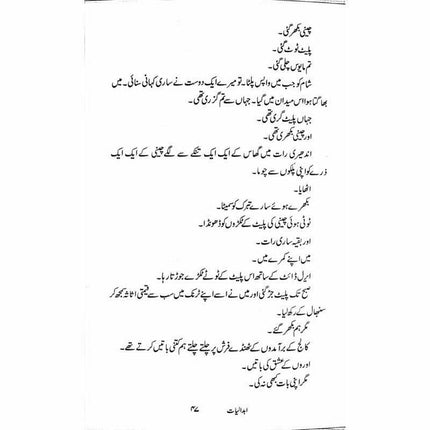 چینی بکھر گئی۔
پلیٹ ٹوٹ گئی۔
تم مایوس چلی گئی۔
شام کو جب میں واپس پلٹا۔ تو میرے ایک دوست نے ساری کہانی سنائی۔ میں
بھاگتا ہوا اس میدان میں گیا۔ جہاں سے تم گزری تھی۔
جہاں پلیٹ گری تھی۔
اور چینی بکھری تھی۔
اندھیری رات میں گھاس کے ایک ایک تنکے سے لگے چینی کے ایک ایک
ذرے کو اپنی پلکوں سے چوما۔
اٹھایا۔
بکھرے ہوئے سارے تبرک کو سمیٹا۔
ٹوٹی ہوئی چینی کی پلیٹ کے ٹکڑوں کو ڈھونڈا۔
اور بقیہ ساری رات۔
میں اپنے کمرے میں۔
ایرل ڈائٹ کے ساتھ اس پلیٹ کے ٹوٹے ٹکڑے جوڑتا رہا۔
صبح تک پلیٹ جڑ گئی اور میں نے اسے اپنے ٹرنک میں سب سے قیمتی اثاثہ سمجھ کر
سنبھال کے رکھ لیا۔
مگر ہم بکھر گئے۔
کالج کے برآمدوں کے ٹھنڈے فرش پر چلتے چلتے ہم کتنی باتیں کرتے تھے۔
اوروں کے عشق کی باتیں۔
مگر اپنی بات کبھی نہ کی۔
ابدالیات ۴۷